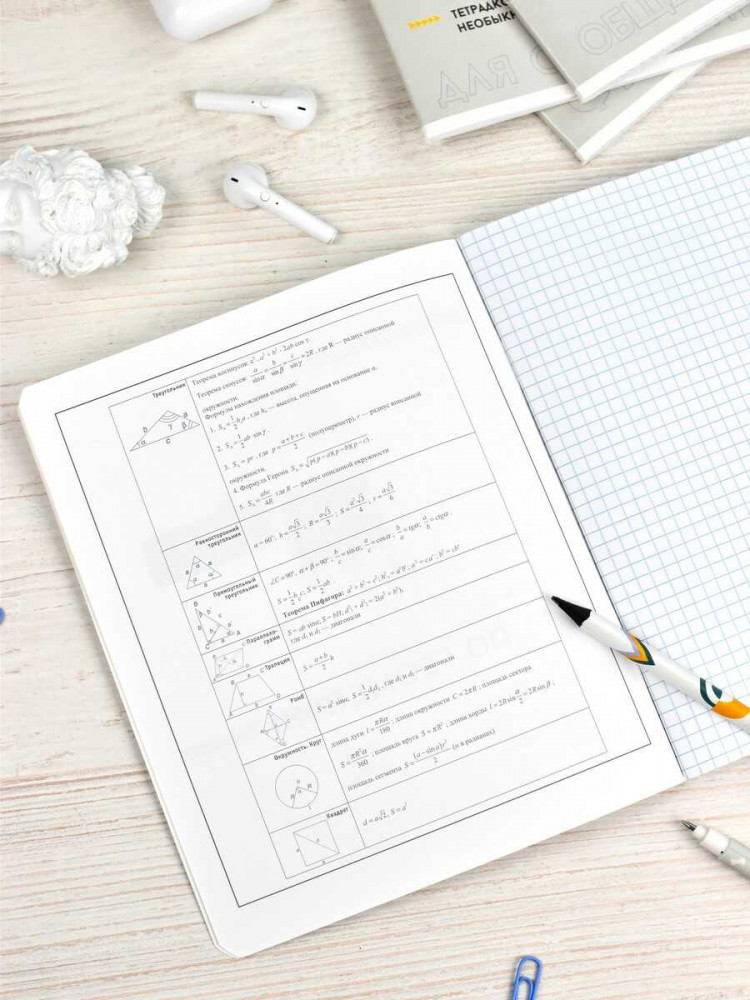 ТЕТРАДКО
НЕОБЫКН
ДЛЯ О ОБЩ
Треугольник
Теорема косинусов: c² = a² + b² - 2ab cos γ.
Теорема синусов: a/sin α = b/sin β = c/sin γ = 2R, где R — радиус описанной
окружности.
Формулы нахождения площади:
1. Sₐ = 1/2 hₐa, где hₐ — высота, опущенная на основание a.
2. Sₐ = 1/2 ab · sin γ.
3. Sₐ = pr, где p = (a+b+c)/2 (полупериметр), r — радиус вписанной
окружности.
4. Формула Герона Sₐ = √p(p−a)(p−b)(p−c).
5. Sₐ = abc/4R где R — радиус описанной окружности
Равносторонний
треугольник
α = 60°; h = a√3/2; R = a√3/3; S = a²√3/4; r = a√3/6
Прямоугольный
треугольник
∠C = 90°, α + β = 90°; b/c = sin α; a/c = cos α; b/a = tg α; a/b = ctg α.
S = 1/2 h c; S = 1/2 ab
Теорема Пифагора: a² + b² = c²;
Параллело-
грамм
S = ab sin α, S = bh; d₁² + d₂² = 2(a² + b²),
где d₁ и d₂ — диагонали
Трапеция
S = (a+b)/2 h
Ромб
S = a² sin α, S = 1/2 d₁d₂, где d₁ и d₂ — диагонали
Окружность. Круг
длина дуги l = πRα/180; длина окружности C = 2πR; площадь сектора
S = πR²α/360; площадь круга S = πR²; длина хорды l = 2R sin α/2 = 2R sin β;
площадь сегмента S = (α − sin α)r²/2 (α в радианах)
Квадрат
d = a√2, S = a²